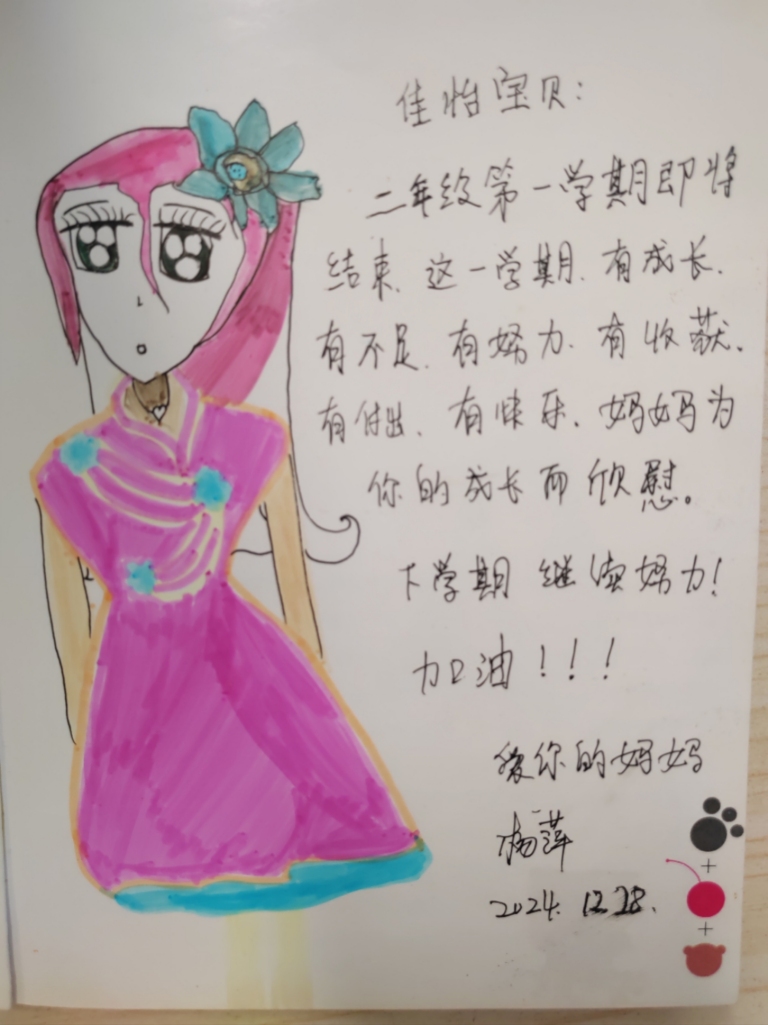 佳怡宝贝：
二年级第一学期即将
结束、这一学期、有成长、
有不足、有努力、有收获、
有付出、有快乐、妈妈为
你的成长而欣慰。
下学期 继续努力！
加油！！！
爱你的妈妈
杨萍
2024.12.28.
+
+